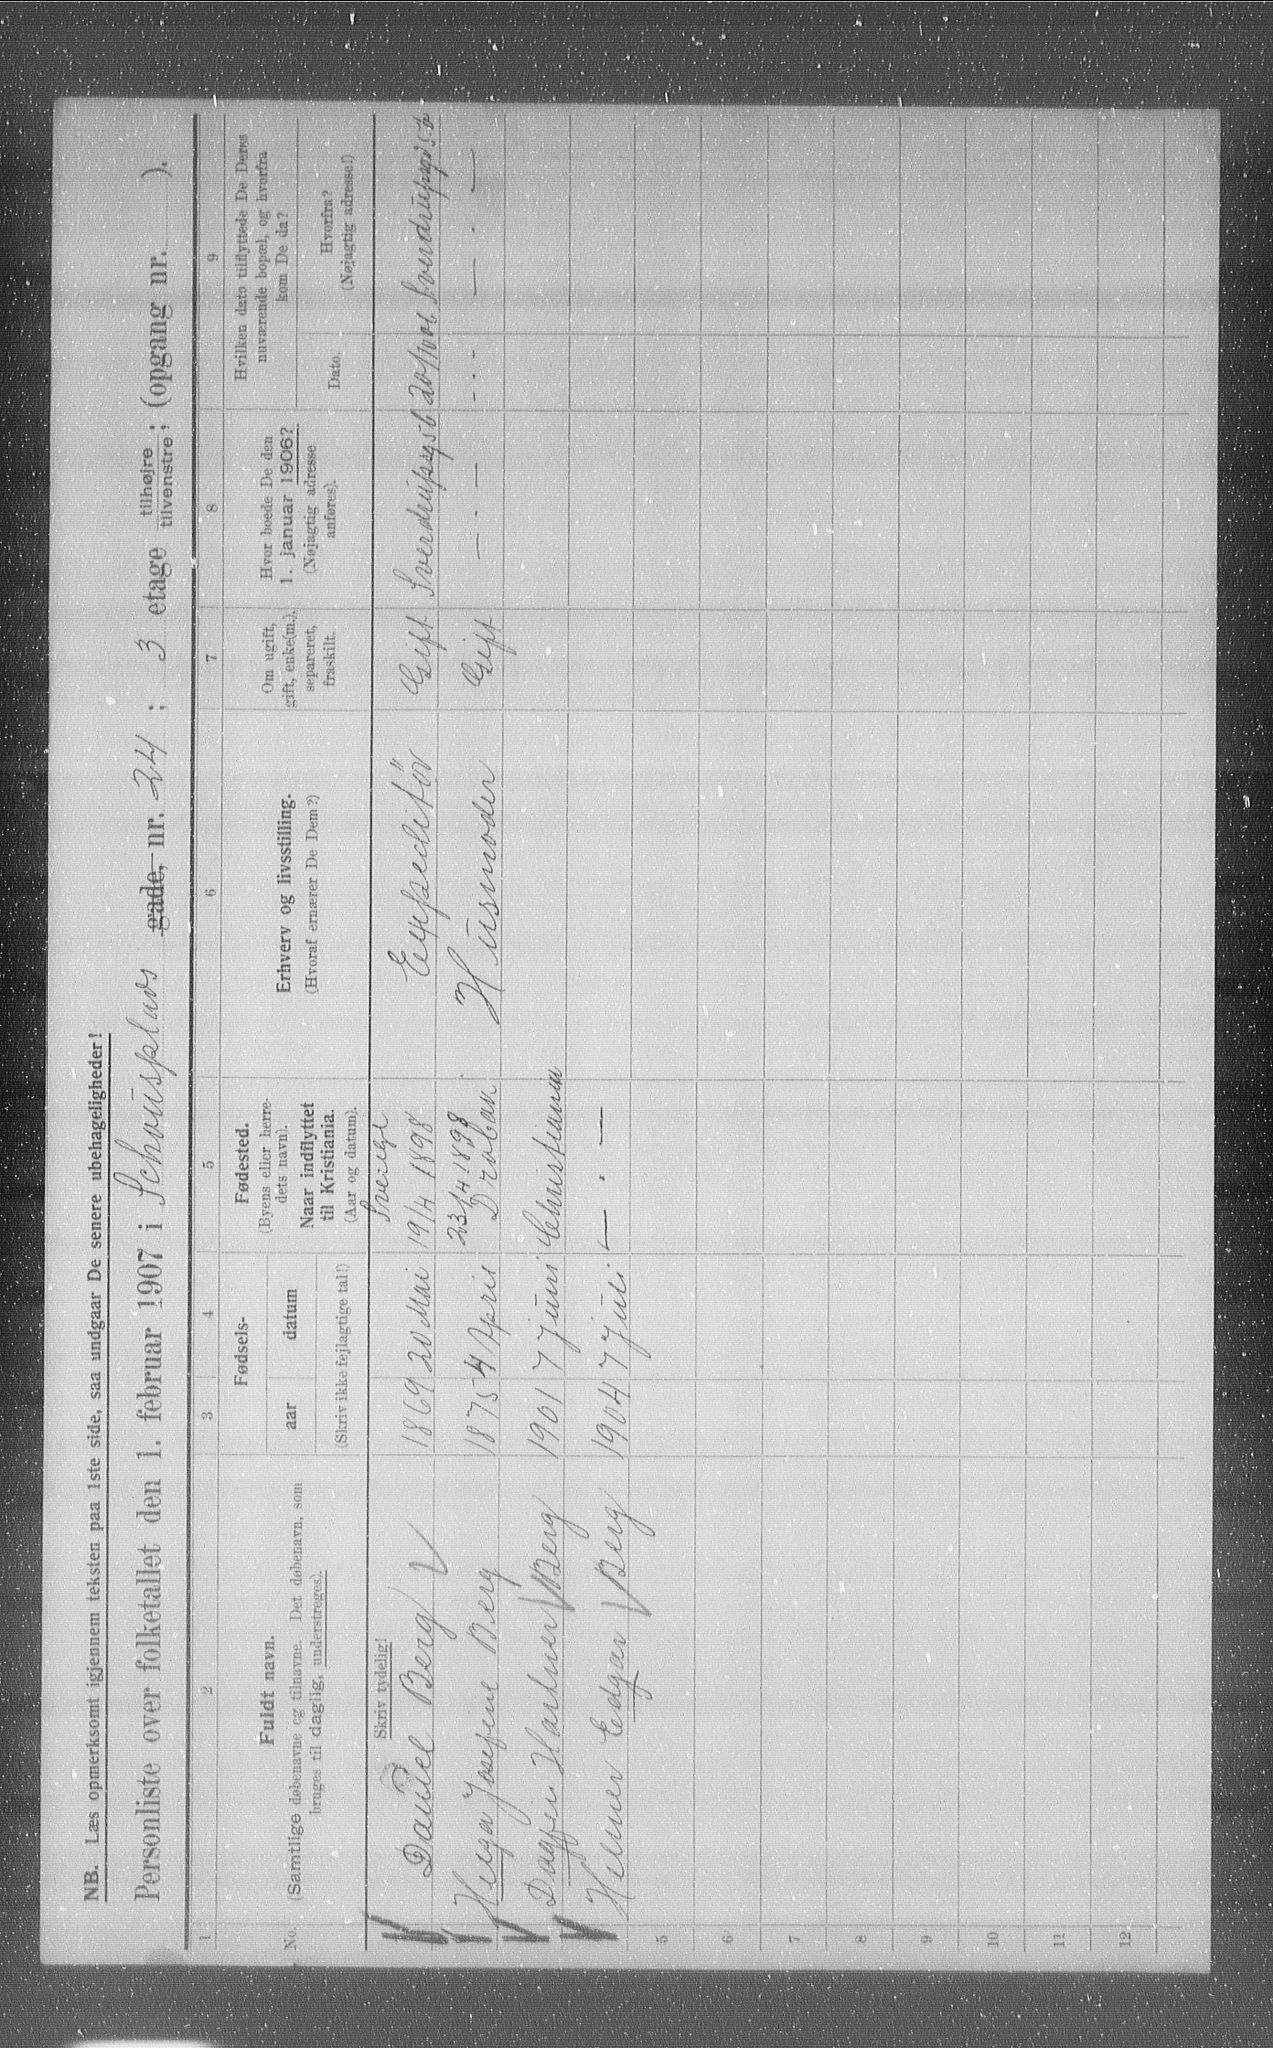 NB. Læs opmerksomt igjennem teksten paa 1ste side, saa undgaar De senere ubehageligheder!
Personliste over folketallet den 1. februar 1907 i Schousplads gade, nr. 24 ; 3 etage tilhøjre tilvenstre ; (opgang nr. ).
1 2 3 4 5 6 7 8 9
No.
Fuldt navn.
(Samtlige døbenavne og tilnavne. Det døbenavn, som
bruges til daglig, understreges).
Fødsels-
aar datum
(Skriv ikke fejlagtige tal!)
Fødested.
(Byens eller herre-
dets navn).
Naar indflyttet
til Kristiania.
(Aar og datum).
Erhverv og livsstilling.
(Hvoraf ernærer De Dem?)
Om ugift,
gift, enke(m.),
separeret,
fraskilt.
Hvor boede De den
1. januar 1906?
(Nøjagtig adresse
anføres).
Hvilken dato tilflyttede De Deres
nuværende bopæl, og hvorfra
kom De da?
Dato.
Hvorfra?
(Nøjagtig adresse!)
Skriv tydelig!
Sverige
Daniel Berg 1869 20 Mai 19/4 1898 Expeditör Gift Sverdrupsgt
23/4 1898
Helga Josefine Berg 1875 4 April Drøbak Husmoder Gift — . — - - - — . —
Dagfin Hartner Berg 1901 7 Juni Christiania
Helmer Edgar Berg 1904 7 Juli — . —
5
6
7
8
9
10
11
12